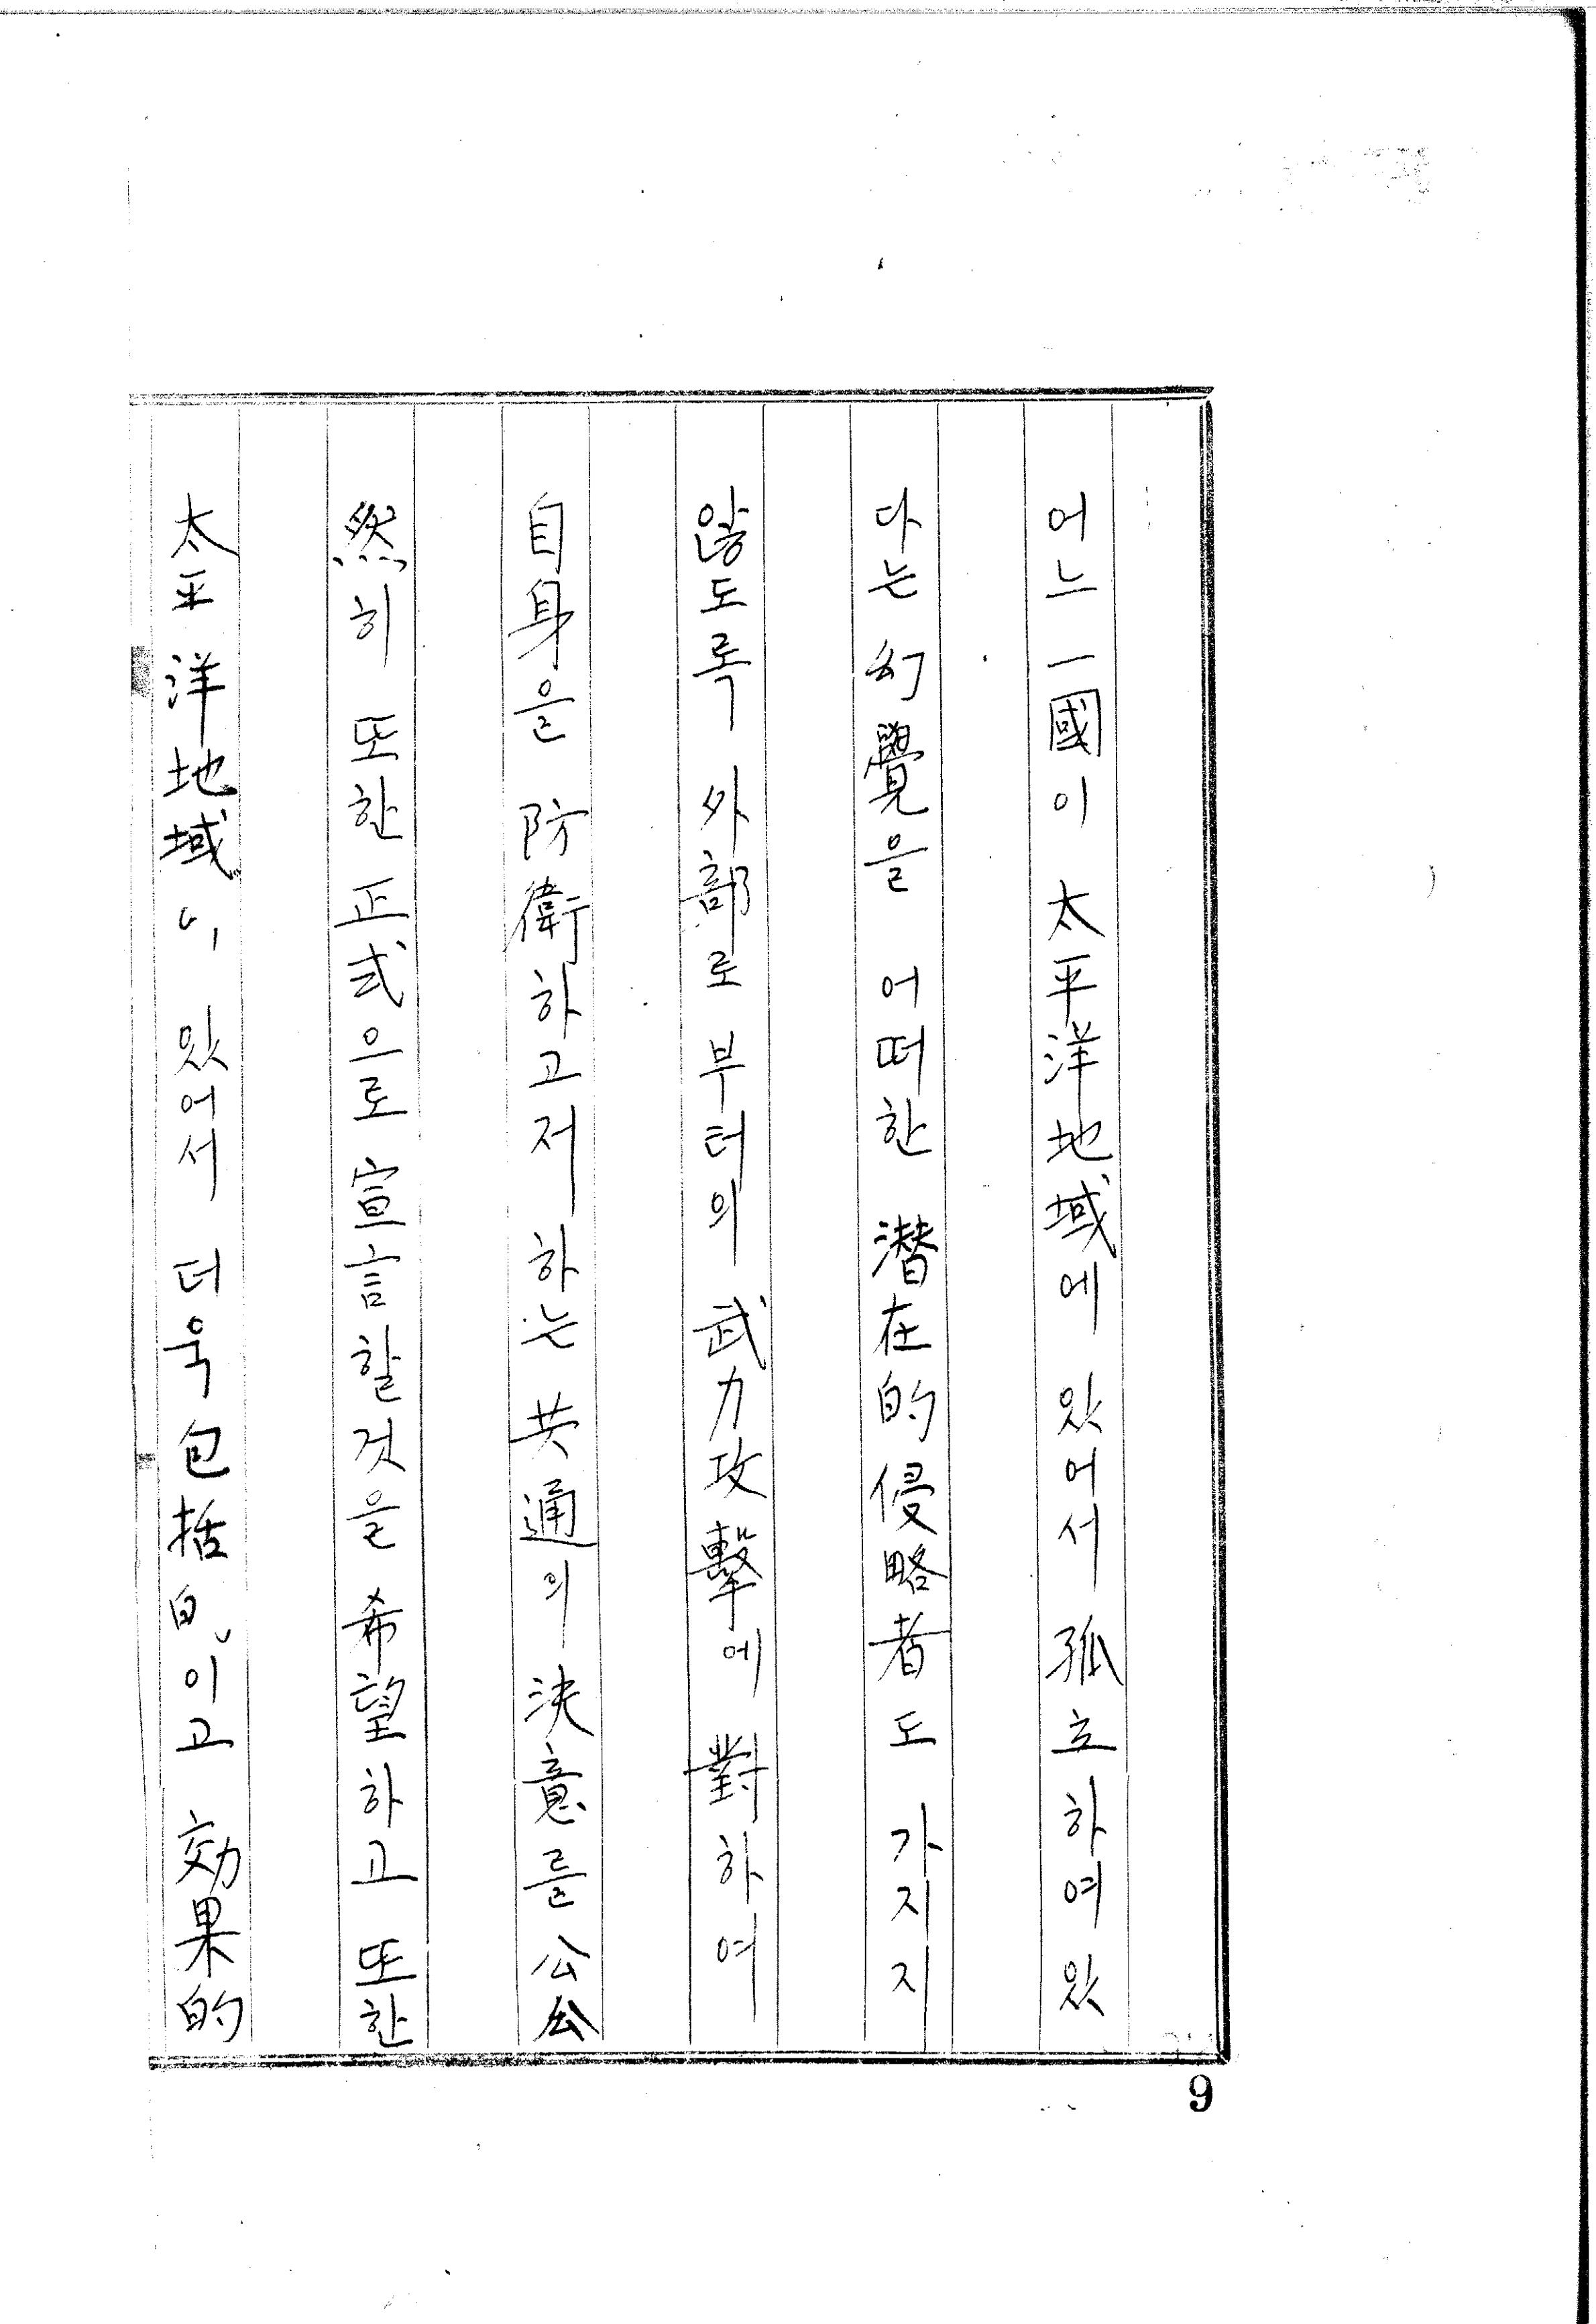 어느 一國이 太平洋地域에 있어서 孤立하여 있
다는 幻覺을 어떠한 潛在的 侵略者도 가지지
않도록 外部로 부터의 武力攻擊에 對하여
自身을 防衛하고저 하는 共通의 決意를 公公
然히 또한 正式으로 宣言할것을 希望하고 또한
太平洋地域에 있어서 더욱 包括的이고 効果的
9